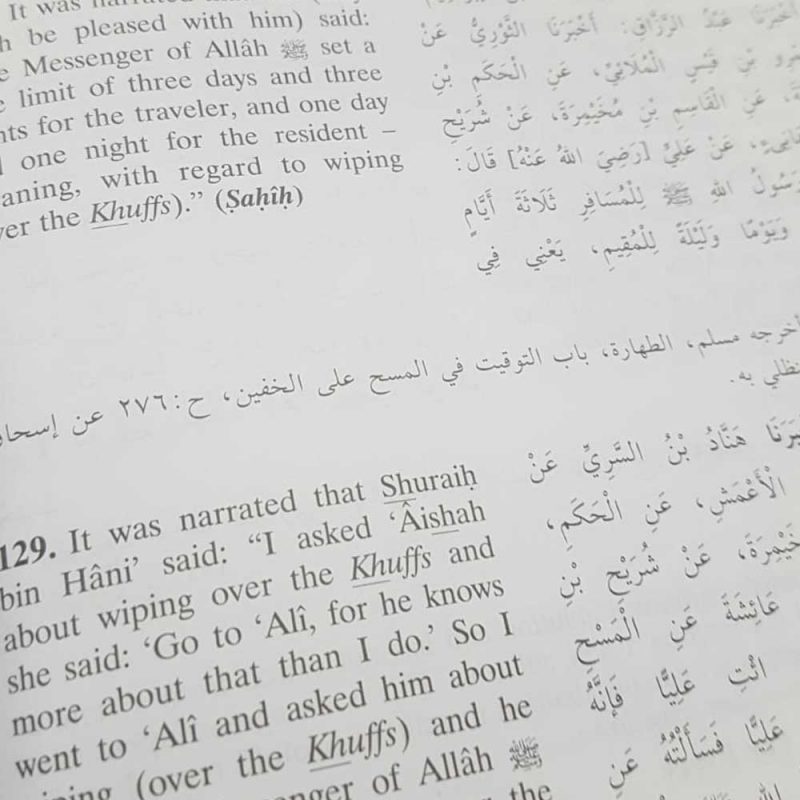 It was narrated
be pleased with him) said:
Messenger of Allâh ﷺ set a
limit of three days and three
for the traveler, and one day
one night for the resident –
with regard to wiping
the Khuffs).” (Ṣaḥîḥ)
عَبْدُ الرَّزَّاقِ: أَخْبَرَنَا الثَّوْرِيُّ عَنْ
بْنِ قَيْسٍ الْمُلَائِيِّ، عَنِ الْحَكَمِ بْنِ
عَنِ الْقَاسِمِ بْنِ مُخَيْمِرَةَ، عَنْ شُرَيْحِ
عَنْ عَلِيٍّ [رَضِيَ اللهُ عَنْهُ] قَالَ:
رَسُولُ اللهِ ﷺ لِلْمُسَافِرِ ثَلَاثَةَ أَيَّامٍ
وَيَوْمًا وَلَيْلَةً لِلْمُقِيمِ، يَعْنِي فِي
أخرجه مسلم، الطهارة، باب التوقيت في المسح على الخفين، ح:٢٧٦ عن
به.
129. It was narrated that Shuraiḥ
bin Hâni’ said: “I asked ‘Âishah
about wiping over the Khuffs and
she said: ‘Go to ‘Alî, for he knows
more about that than I do.’ So I
went to ‘Alî and asked him about
(over the Khuffs) and he
of Allâh ﷺ
the
هَنَّادُ بْنُ السَّرِيِّ عَنْ
الْأَعْمَشِ، عَنِ الْحَكَمِ،
عَنْ شُرَيْحِ بْنِ
عَائِشَةَ عَنِ الْمَسْحِ
ائْتِ عَلِيًّا فَإِنَّهُ
عَلِيًّا فَسَأَلْتُهُ عَنِ